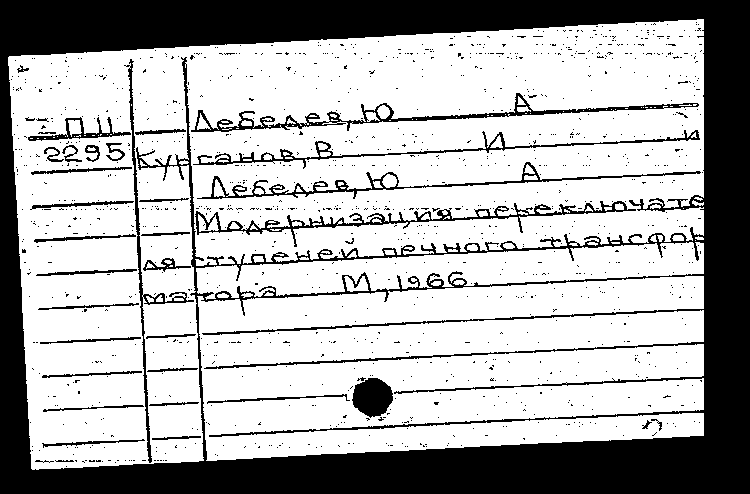 П11 Лебедев, Ю А
2295 Курганов, В И и
Лебедев, Ю А
Модернизация переключате
ля ступеней печного трансфор
матора М, 1966.